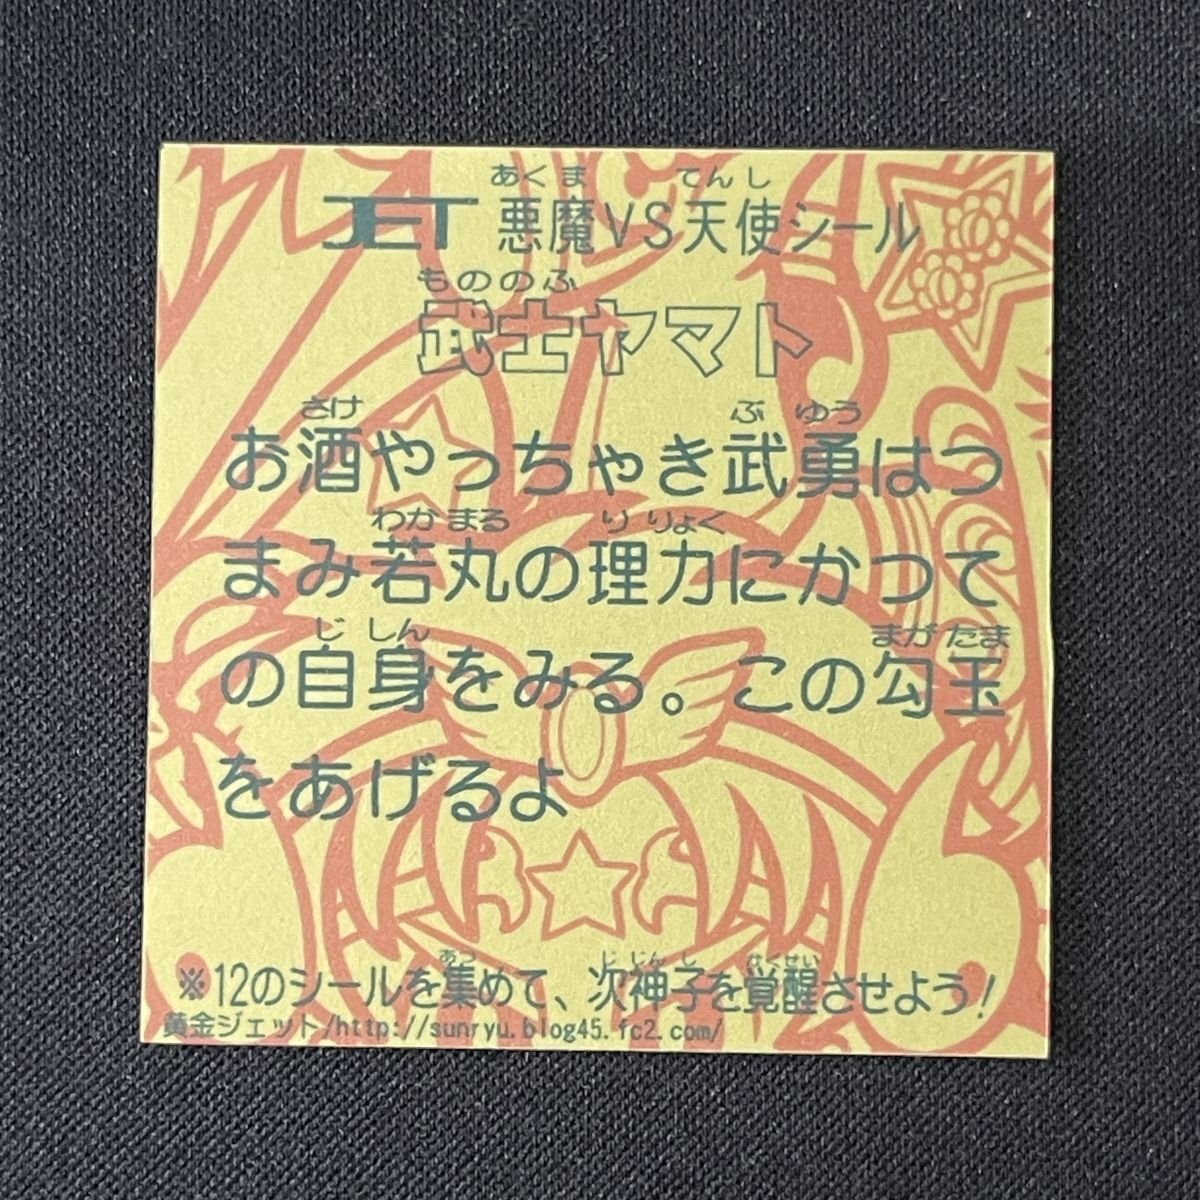 あくま てんし
JET 悪魔VS天使シール
もののふ
武士ヤマト
さけ ぶ ゆう
お酒やっちゃき武勇はつ
わか まる り りょく
まみ若丸の理力にかつて
じ しん まが たま
の自身をみる。この勾玉
をあげるよ
あつ じ じん し かくせい
※12のシールを集めて、次神子を覚醒させよう!
黄金ジェット/http://sunryu.blog45.fc2.com/